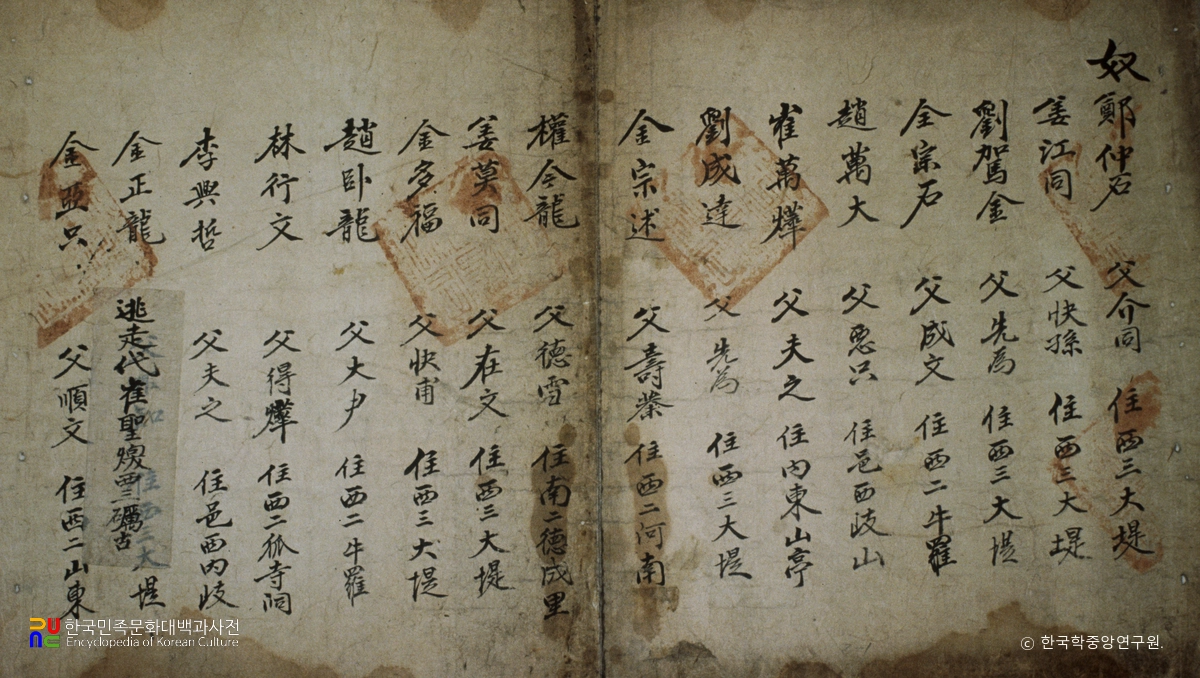 奴 鄭仲石 父介同 住西三大堤
姜江同 父快孫 住西三大堤
劉駕金 父先為 住西三大堤
全宗石 父成文 住西二牛羅
趙萬大 父惡只 住邑西歧山
崔萬燁 父夫之 住內東山亭
劉成達 父先為 住西三大堤
金宗述 父壽榮 住西二河南
權今龍 父德雪 住南二德成里
姜莫同 父在文 住西三大堤
金多福 父快甫 住西三大堤
趙卧龍 父大尹 住西二牛羅
林行文 父得燁 住西二狐寺洞
李興哲 父夫之 住邑西內歧
金正龍 逃走代崔聖㷜西三礪古 堤
金亞只 父順文 住西二山東
한국민족문화대백과사전
Encyclopedia of Korean Culture
ⓒ 한국학중앙연구원.